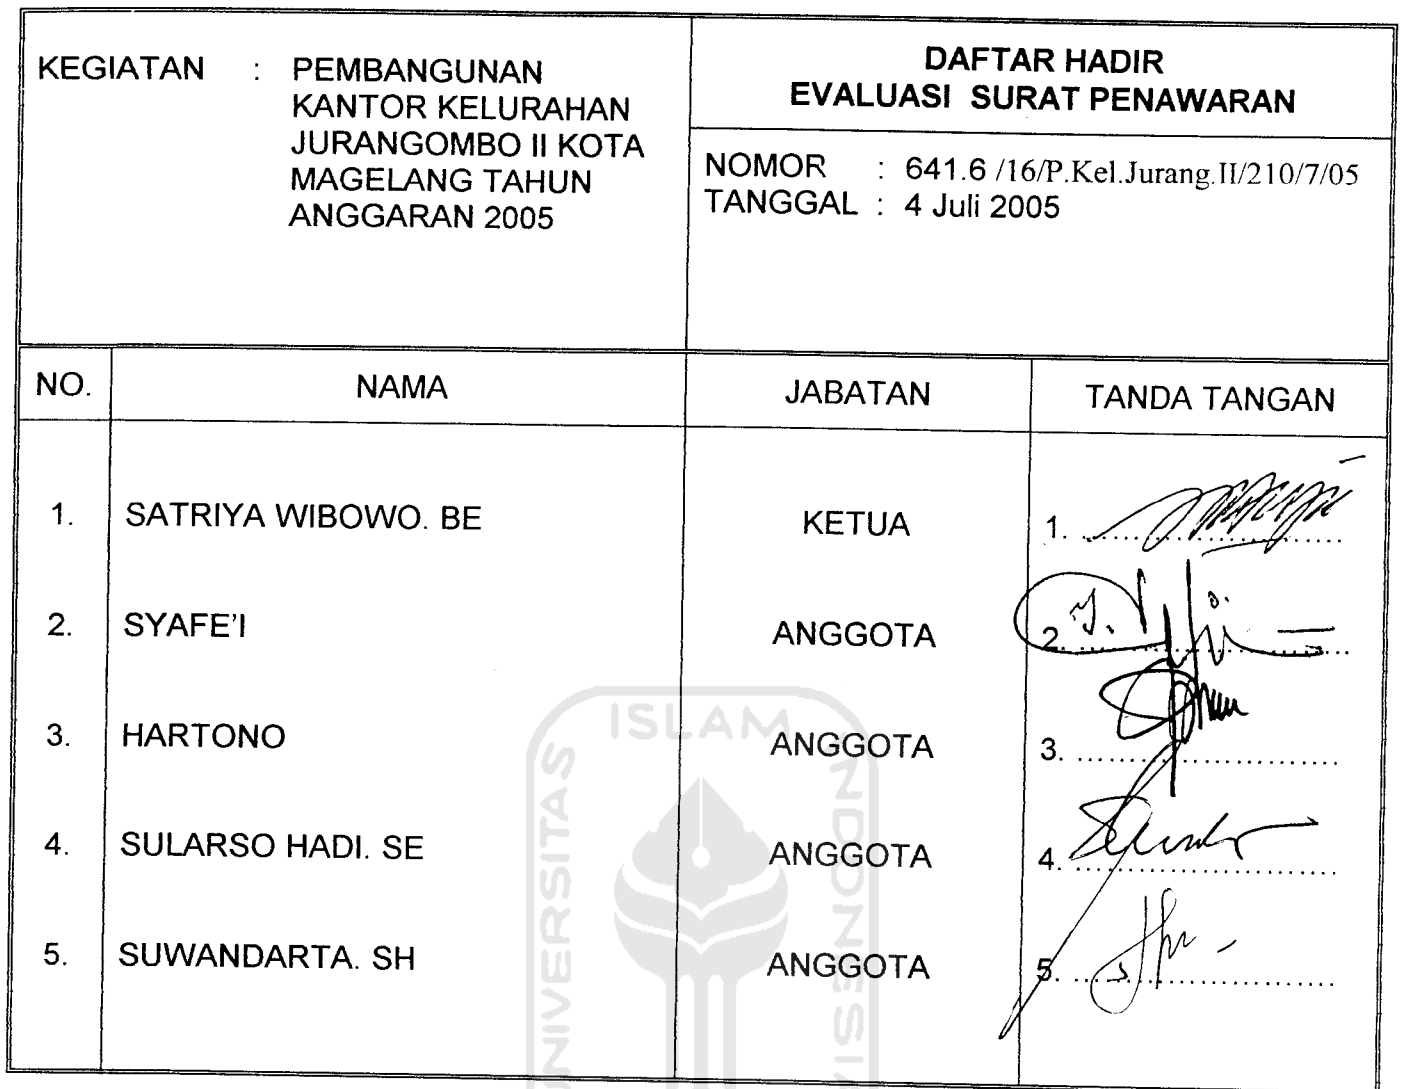 KEGIATAN : PEMBANGUNAN
KANTOR KELURAHAN
JURANGOMBO II KOTA
MAGELANG TAHUN
ANGGARAN 2005
DAFTAR HADIR
EVALUASI SURAT PENAWARAN
NOMOR : 641.6 /16/P.Kel.Jurang.II/210/7/05
TANGGAL : 4 Juli 2005
NO. NAMA JABATAN TANDA TANGAN
1. SATRIYA WIBOWO. BE KETUA 1. ..............................
2. SYAFE'I ANGGOTA 2. ..............................
3. HARTONO ANGGOTA 3. ..............................
4. SULARSO HADI. SE ANGGOTA 4. ..............................
5. SUWANDARTA. SH ANGGOTA 5. ..............................
UNIVERSITAS
ISLAM
INDONESIA